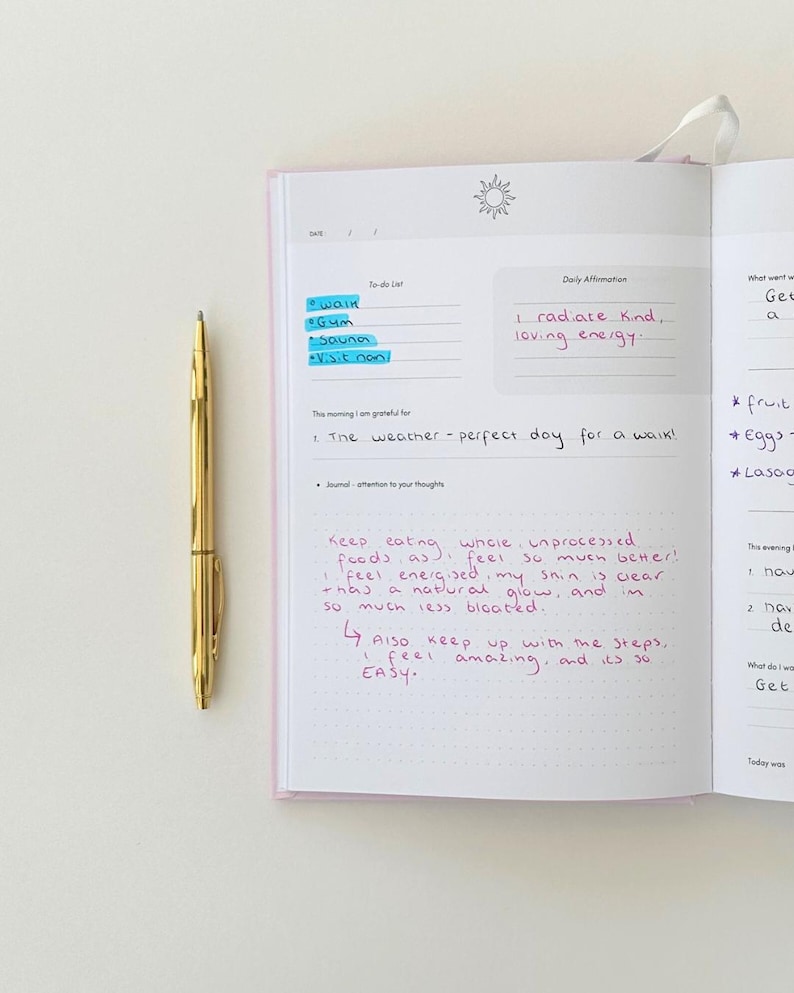 DATE: / /
To-do List
• walk
• Gym
• Sauna
• Visit nan!
Daily Affirmation
I radiate kind,
loving energy.
This morning I am grateful for
1. The weather - perfect day for a walk!
• Journal - attention to your thoughts
Keep eating whole, unprocessed
foods, as i feel so much better!
i feel energised, my skin is clear
+ has a natural glow, and im
so much less bloated.
↳ Also keep up with the steps,
i feel amazing, and its so
EASY.
What went w
Get
a
* fruit
* Eggs -
* Lasag
This evening I
1. hav
2. hav
de
What do I wa
Get
Today was